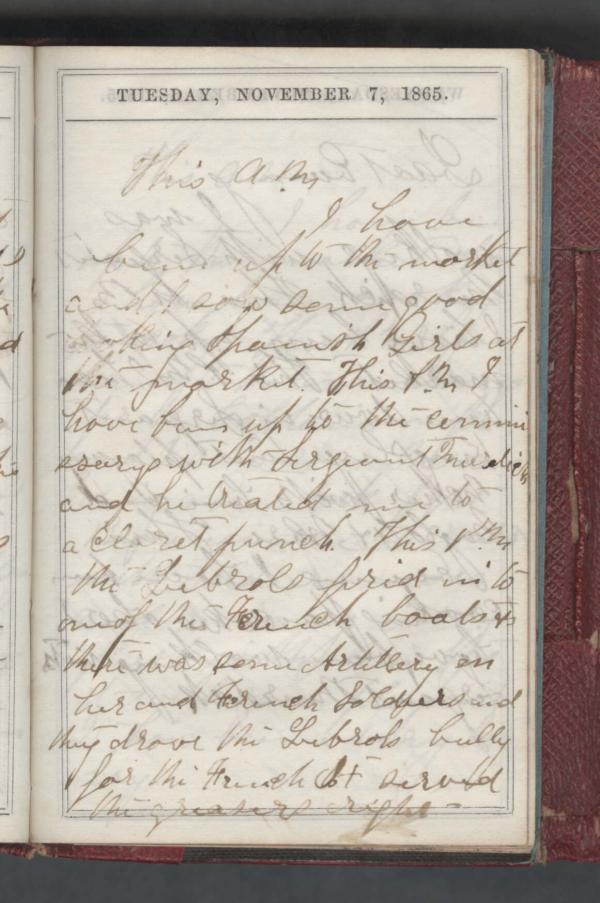 TUESDAY, NOVEMBER 7, 1865.
This A.M,
I have
been up to the market
and I saw some good
looking Spanish Girls at
the market. This P.M I
have been up to the commi
ssary with Sergeant
and he treated me to
a Claret punch. This P.M
the Lebrols fired in to
one of the French boats &
there was some Artillery on
her and French Soldiers and
they drove the Lebrols bully
for the French it served
the greasers right